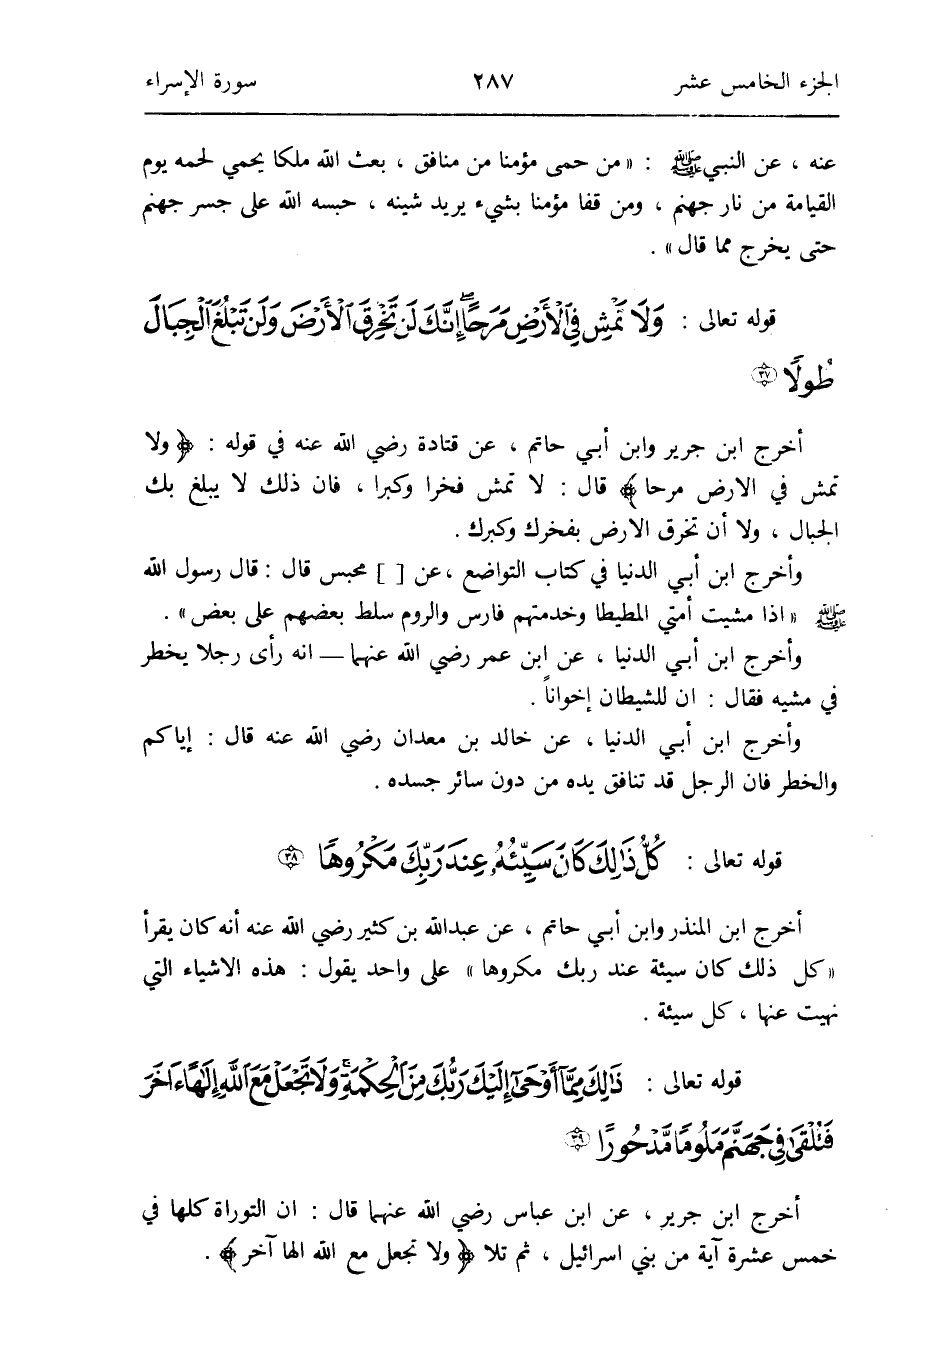 الجزء الخامس عشر ٢٨٧ سورة الإسراء
عنه ، عن النبي ﷺ : « من حمى مؤمنا من منافق ، بعث الله ملكا يحمي لحمه يوم
القيامة من نار جهنم ، ومن قفا مؤمنا بشيء يريد شينه ، حبسه الله على جسر جهنم
حتى يخرج مما قال » .
قوله تعالى : وَلَا تَمْشِ فِي ٱلْأَرْضِ مَرَحًا ۖ إِنَّكَ لَن تَخْرِقَ ٱلْأَرْضَ وَلَن تَبْلُغَ ٱلْجِبَالَ
طُولًا ٣٧
أخرج ابن جرير وابن أبي حاتم ، عن قتادة رضي الله عنه في قوله : ﴿ ولا
تمش في الارض مرحا ﴾ قال : لا تمش فخرا وكبرا ، فان ذلك لا يبلغ بك
الجبال ، ولا أن تخرق الارض بفخرك وكبرك .
وأخرج ابن أبي الدنيا في كتاب التواضع ، عن [ ] محبس قال : قال رسول الله
ﷺ « اذا مشيت أمتي المطيطا وخدمتهم فارس والروم سلط بعضهم على بعض » .
وأخرج ابن أبي الدنيا ، عن ابن عمر رضي الله عنهما — انه رأى رجلا يخطر
في مشيه فقال : ان للشيطان إخواناً .
وأخرج ابن أبي الدنيا ، عن خالد بن معدان رضي الله عنه قال : إياكم
والخطر فان الرجل قد تنافق يده من دون سائر جسده .
قوله تعالى : كُلُّ ذَٰلِكَ كَانَ سَيِّئُهُۥ عِندَ رَبِّكَ مَكْرُوهًا ٣٨
أخرج ابن المنذر وابن أبي حاتم ، عن عبدالله بن كثير رضي الله عنه أنه كان يقرأ
« كل ذلك كان سيئة عند ربك مكروها » على واحد يقول : هذه الاشياء التي
نهيت عنها ، كل سيئة .
قوله تعالى : ذَٰلِكَ مِمَّآ أَوْحَىٰٓ إِلَيْكَ رَبُّكَ مِنَ ٱلْحِكْمَةِ ۗ وَلَا تَجْعَلْ مَعَ ٱللَّهِ إِلَٰهًا ءَاخَرَ
فَتُلْقَىٰ فِي جَهَنَّمَ مَلُومًا مَّدْحُورًا ٣٩
أخرج ابن جرير ، عن ابن عباس رضي الله عنهما قال : ان التوراة كلها في
خمس عشرة آية من بني اسرائيل ، ثم تلا ﴿ ولا تجعل مع الله الها آخر ﴾ .